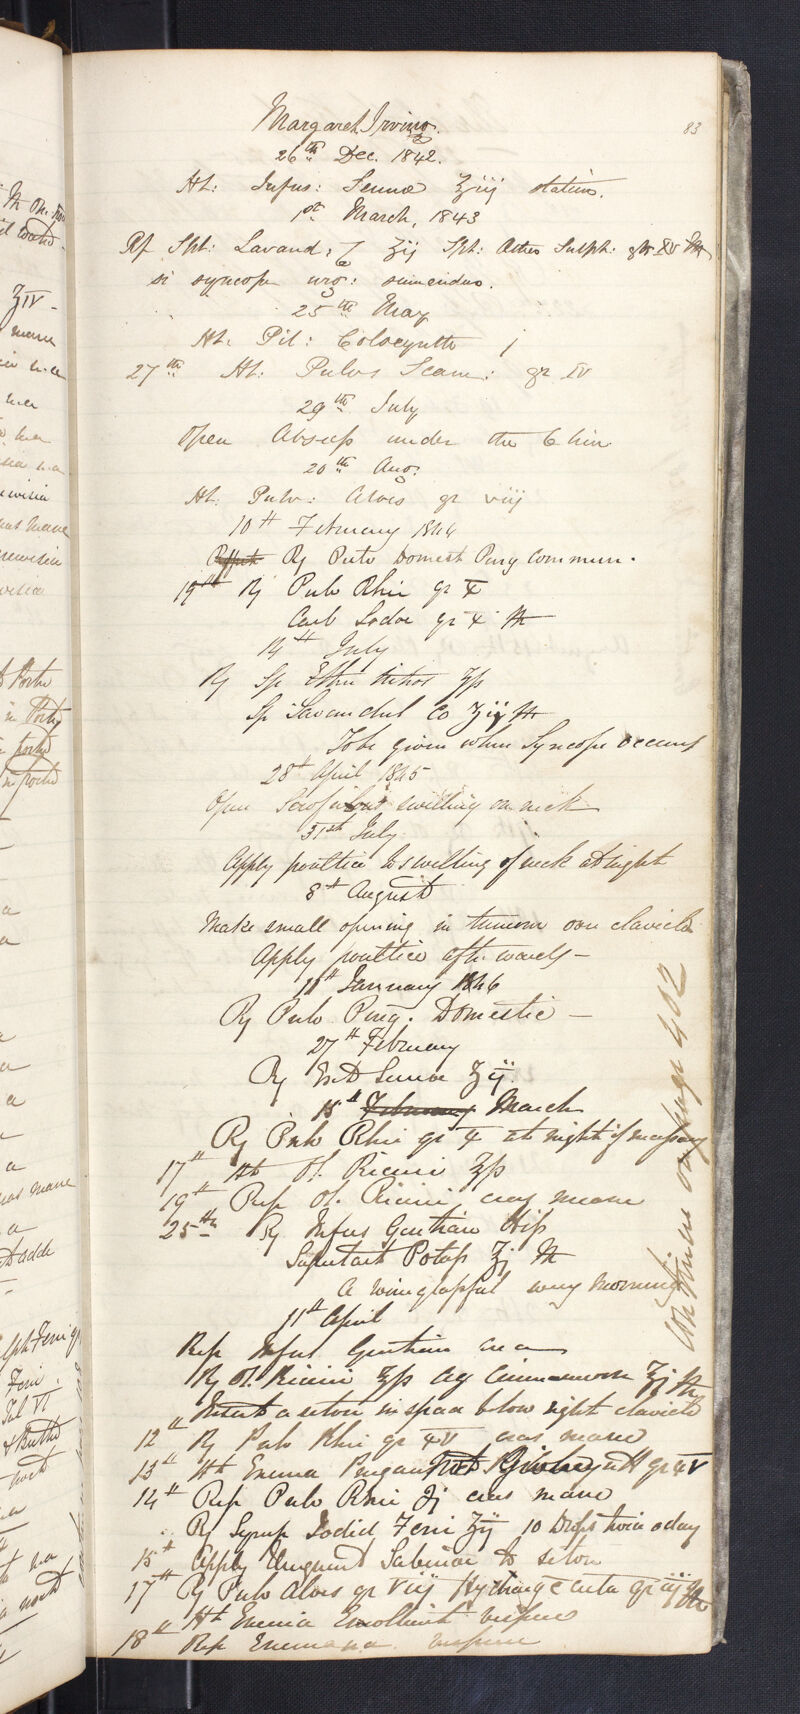 83
Margaret Irving.
26th Dec. 1842.
Ht: Infus: Sennæ ℥iij statim.
1st March, 1843
Rp Spt: Lavand: C ʒij Spt: Ether Sulph: gtt XV M
si syncope urg: sumendus.
25th May
Ht. Pil: Colocynth j
27th Ht: Pulvs Scam: gr XV
29th July
Open Abscess under the Chin
20th Aug:
Ht. Pulv: Aloes gr viij
10th February 1844
Rx Pulv Domest Purg Commun.
19th Rx Pulv Rhei gr X
Carb Sodae gr X M
14th July
Rx Sp Ether Nitros ʒſs
Sp Lavandul Co ʒij M
To be given when Syncope occurs
28th April 1845
Open Scrofulous swelling on neck
31st July
Apply poultice to swelling of neck at night
8th August
Make small opening in tumour over clavicle
Apply poultice afterwards —
11th January 1846
Rx Pulv Purg. Domestic —
27th February
Rx Inf Sennae ℥ij.
15th February March
Rx Pulv Rhei gr X at night if necessary
17th Ht Ol. Ricini ℥ſs
19th Rep Ol. Ricini cras mane
25th Rx Infus Gentian
Supertart Potass ℥j M
A wineglassful every morning
11th April
Rep Infus Gentian
Rx Ol. Ricini ℥ſs Aq Cinnamom ℥j M
Insert a seton in space below right clavicle
12th Rx Pulv Rhei gr XV cras mane
13th Ht Enema Purgans
14th Rep Pulv Rhei ℈j cras mane
Rx Syrup Iodid Ferri ʒij 10 Drops twice a day
15th Apply Unguent Sabinae to seton
17th Rx Pulv Aloes gr viij Hydrarg c Creta gr iij M
Ht Enema Emollient vespere
18th Rep Enema vespere
Continued on page 402